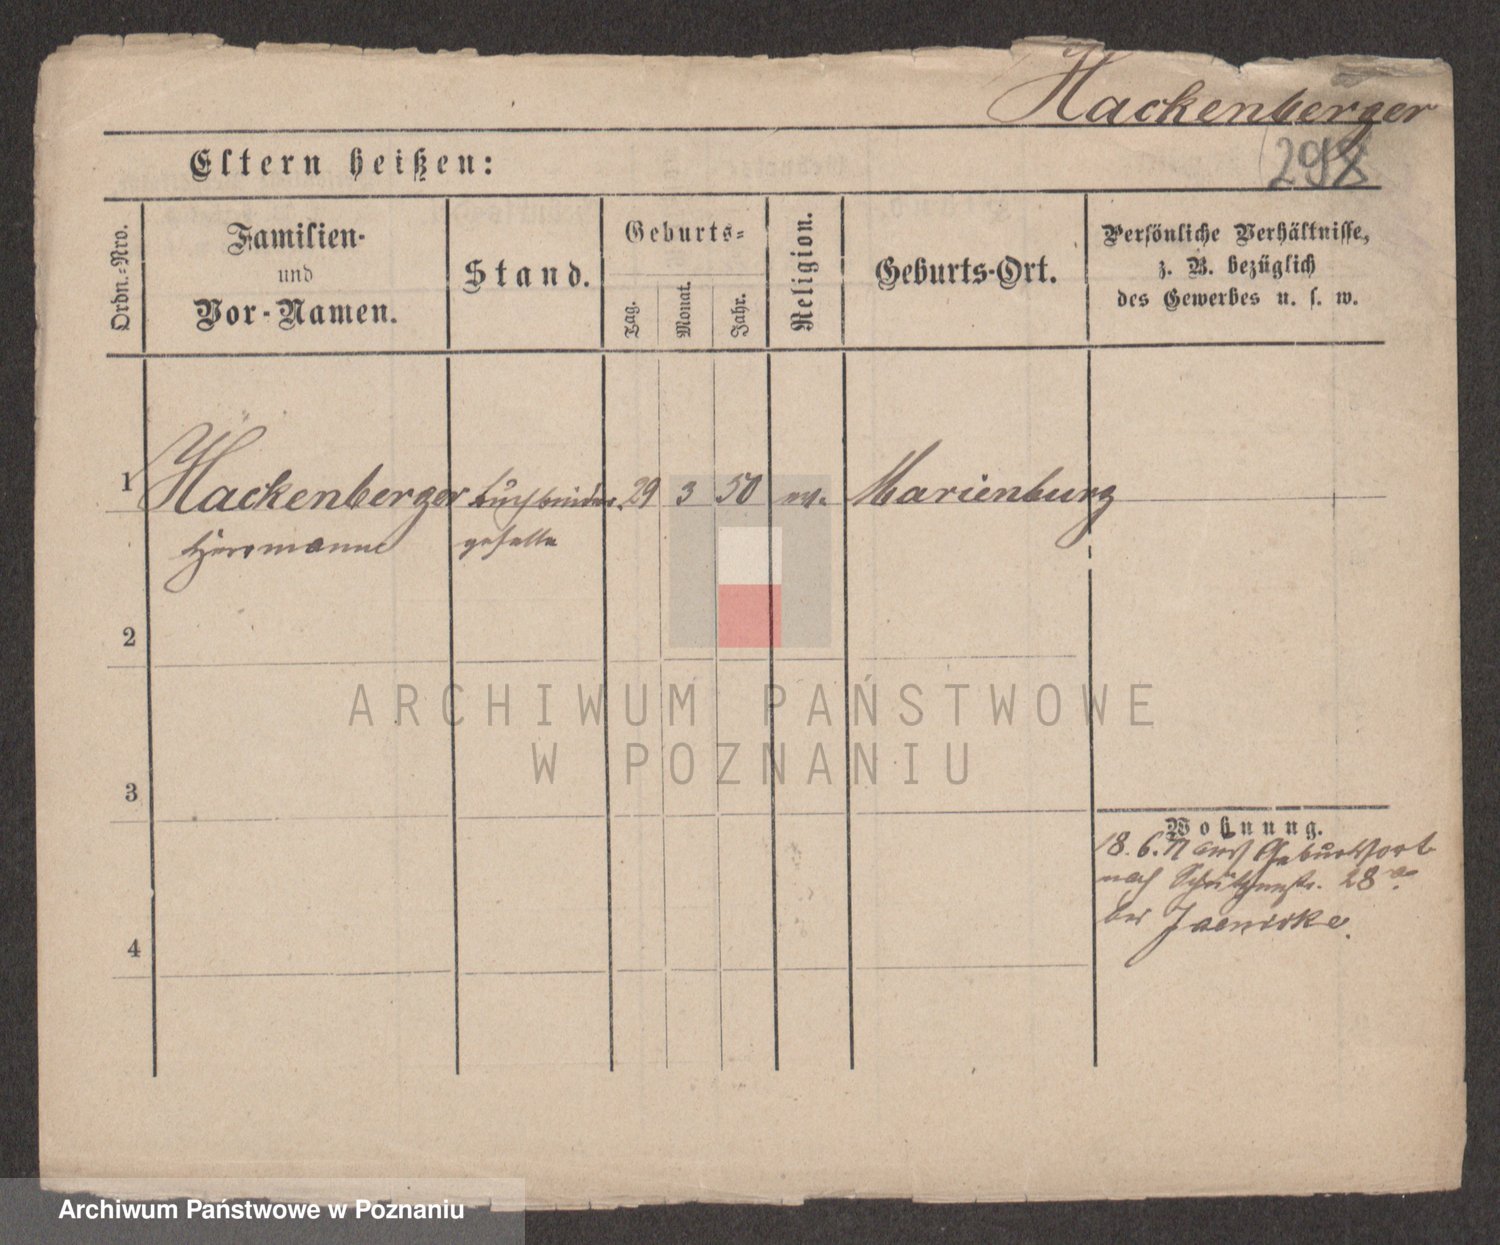 Hackenberger
298
Eltern heißen:
Ordn.-Nro.
Familien-
und
Vor-Namen.
Stand.
Geburts-
Tag.
Monat.
Jahr.
Religion.
Geburts-Ort.
Persönliche Verhältnisse,
z. B. bezüglich
des Gewerbes u. s. w.
1 Hackenberger Buchbinder 29 3 50 ev. Marienburg
Herrmann geselle
2
3
4
Wohnung.
18. 6. 71 aus Geburtsort
nach Schützenstr. 28a
bei Jaenicke.
ARCHIWUM PAŃSTWOWE
W POZNANIU
Archiwum Państwowe w Poznaniu